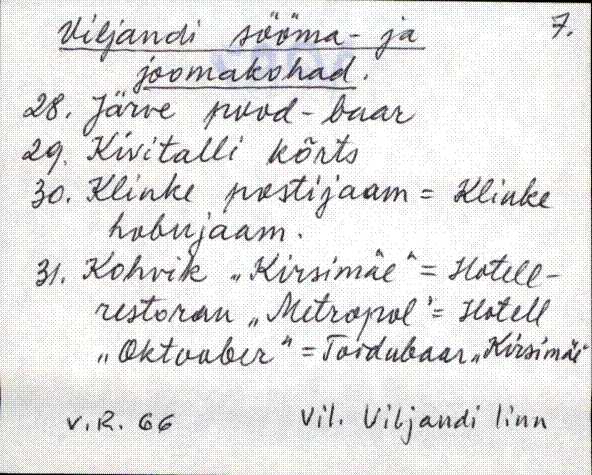 7.
Viljandi sööma- ja
joomakohad.
28. Järve pood-baar
29. Kivitalli kõrts
30. Klinke postijaam = Klinke
hobujaam.
31. Kohvik „Kirsimäe“ = Hotell-
restoran „Metropol“ = Hotell
„Oktoober“ = Toidubaar „Kirsimäe“
V.R. 66
Vil. Viljandi linn